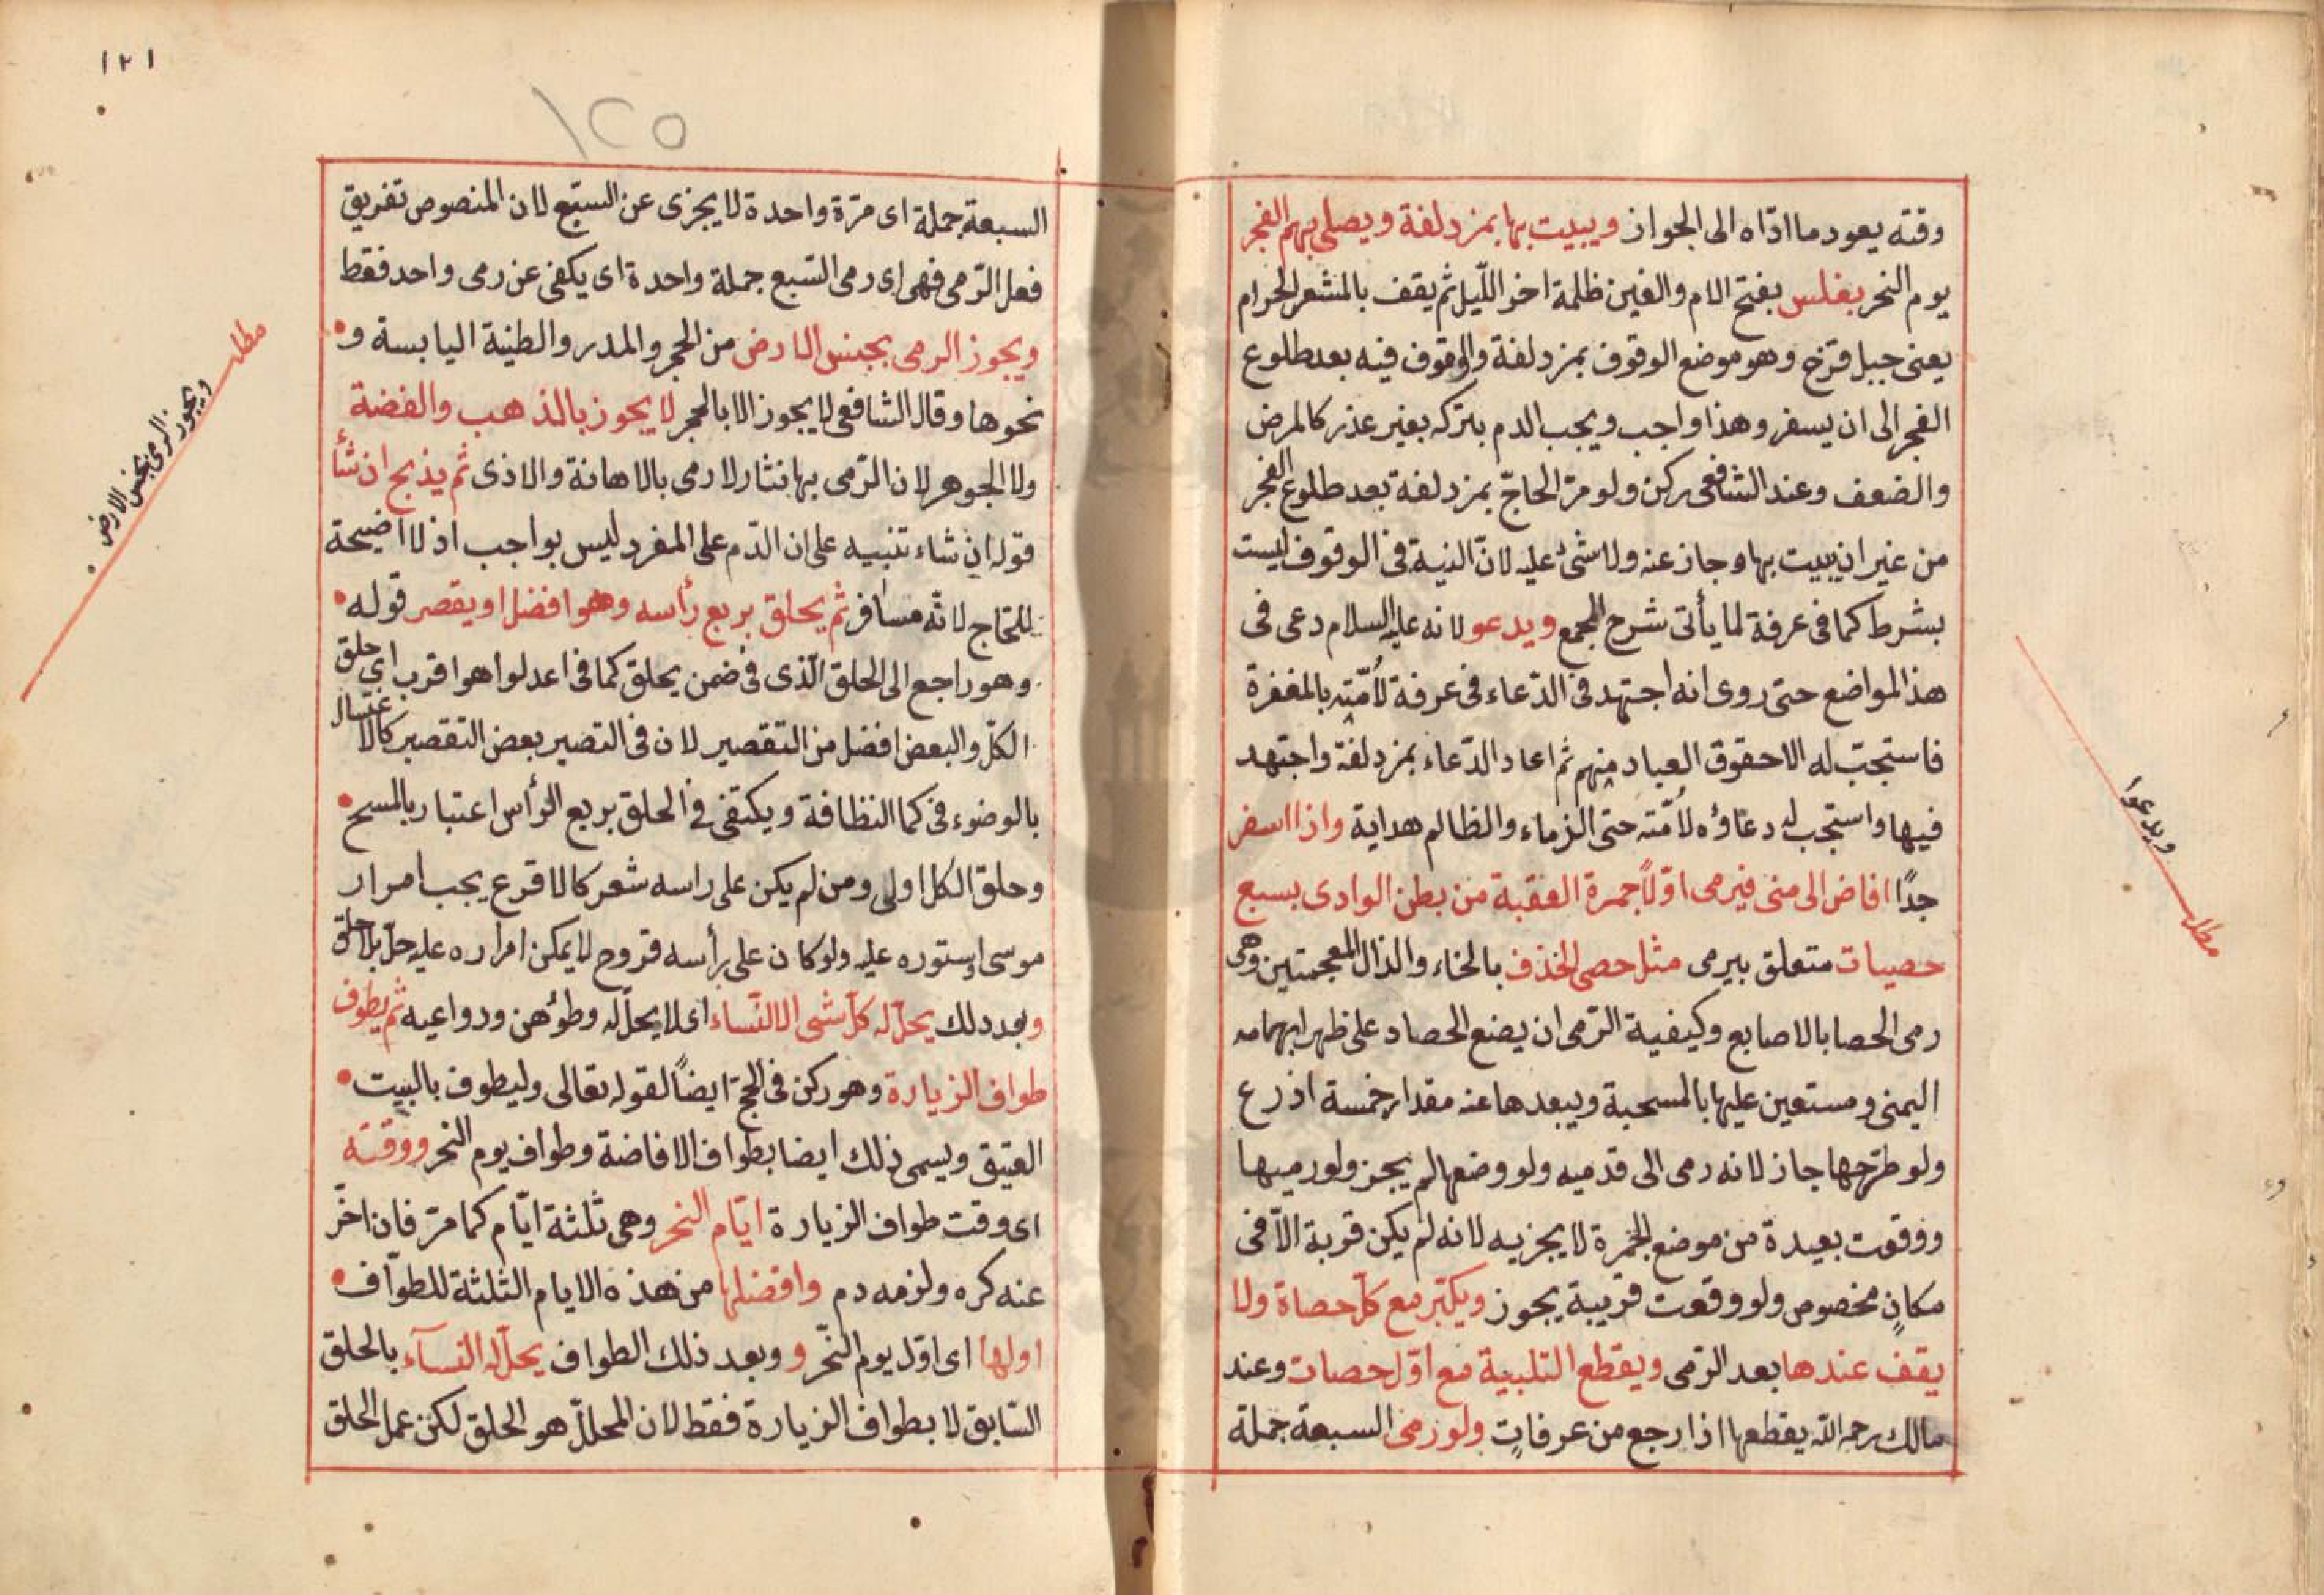 وقته يعود ما ادّاه الى الجواز ويبيت بها بمزدلفة ويصلى بهم الفجر
يوم النحر بغلس بفتح الام والغين ظلمة اخر اللّيل ثم يقف بالمشعر الحرام
يعنى جبل قزخ وهو موضع الوقوف بمزدلفة والوقوف فيه بعد طلوع
الفجر الى ان يسفر وهذا واجب ويجب الدم بتركه بغير عذر كالمرض
والضعف وعند الشافعى ركن ولو مرّ الحاجّ بمزدلفة بعد طلوع الفجر
من غير ان يبيت بها وجاز عنه ولا شئ عليه لانّ النية فى الوقوف ليست
بشرط كما فى عرفة لما يأتى شرح المجمع ويدعو لانه عليه السلام دعى فى
هذ المواضع حتى روى انه اجتهد فى الدّعاء فى عرفة لأمّته بالمغفرة
فاستجبّ له الا حقوق العباد منهم ثم اعاد الدّعاء بمزدلفة واجتهد
فيها واستجب له دعاؤه لأمّته حتى الزماء والظالم هداية واذا اسفر
جدًا افاض الى منى فيرمى اوّلاً جمرة العقبة من بطن الوادى بسبع
حصيات متعلق بيرمى مثل حصى الخذف بالخاء والذال المعجمتين وهى
رمى الحصا بالاصابع وكيفية الرّمى ان يضع الحصاد على ظهر ابهامه
اليمنى ومستعين عليها بالمسحبة ويبعدها عنه مقدار خمسة اذرع
ولو طرّحها جاز لانه رمى الى قدميه ولو وضعها لم يجز ولو رميها
ووقعت بعيدة من موضع الجمرة لا يجزيه لانه لم يكن قربة الاّ فى
مكانٍ مخصوص ولو وقعت قريبة يجوز ويكبّر مع كلّ حصاة ولا
يقف عندها بعد الرّمى ويقطع التلبية مع اوّل حصات وعند
مالك رحمه اللّه يقطعها اذا رجع من عرفات ولو رمى السبعة جملة
مطلـ
ويدعوا
١٢١
١٢٥
السبعة جملة اى مرّة واحدة لا يجزى عن السّبع لان المنصوص تفريق
فعل الرّمى فهى اى رمى السّبع جملة واحدة اى يكفى عن رمى واحد فقط
ويجوز الرمى بجنس الارض من الحجر والمدر والطنية اليابسة و
نحوها وقال الشافعى لا يجوز الا بالحجر لا يجوز بالذهب والفضة
ولا الجوهر لان الرّمى بها نثار لا رمى بالاهانة والاذى ثم يذبح ان شأ
قوله ان شاء تنبيه على ان الدّم على المفرد ليس بواجب اذ لا اضيحة
للحّاج لانّه مسافر ثم يحلق بربع رأسه وهو افضل او يقصر قوله
وهو راجع الى الحلق الّذى فى ضمن يحلق كما فى اعدلوا هو اقرب اى حلق
الكلّ والبعض افضل من التقصير لان فى التصير بعض التقصير كالاغتسال
بالوضوء فى كما النظافة ويكتفى فى الحلق بربع الرّأس اعتبار بالمسح
وحلق الكل اولى ومن لم يكن على راسه شعر كالاقرع يجب امرار
موسى اوستوره عليه ولو كان على رأسه قروح لا يمكن امراره عليه حلّ بلا حلق
وبعد دلك يحلّ له كلّ شى الا النّساء اى لا يحلّ له وطؤهن ودواعيه ثم يطوف
طواف الزيارة وهو ركن فى الحجّ ايضاً لقوله تعالى وليطوف بالبيت
العتيق ويسمى ذلك ايضا بطواف الافاضة وطواف يوم النحر ووقته
اى وقت طواف الزيارة ايّام النحر وهى ثلثة ايّام كما مرّ فان اخّر
عنه كره ولزمه دم وافضلها من هذه الايام الثلثة للطوّاف
اولها اى اوّل يوم النّحر و وبعد ذلك الطواف يحلّ له النسآء بالحلق
السّابق لا بطواف الزيارة فقط لان المحللّ هو الحلق لكن عمل الحلق
مطلـ
ويجوز الرمى بجنس الارض